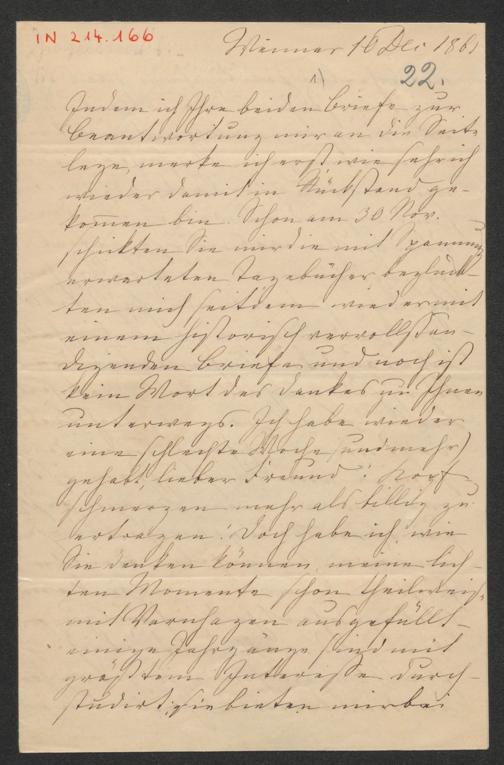 IN 214.166
Weimar 16 Dec 1861
1)
22.
Indem ich Ihre beiden Briefe zur
Beantwortung mir an die Seite
lege, merke ich erst wie sehr ich
wieder damit in Rückstand ge-
kom̄en bin. Schon am 30 Nov.
schickten Sie mir die mit Spannung
erwarteten Tagebücher beglück-
ten mich seitdem wieder mit
einem historisch vervollstän-
digenden Briefe und noch ist
kein Wort des Dankes zu Ihnen
unterwegs. Ich habe wieder
eine schlechte Woche (und mehr)
gehabt, lieber Freund! Kopf-
schmerzen mehr als billig zu
ertragen! Doch habe ich, wie
Sie denken können, meine lich-
ten Momente schon theilweis
mit Varnhagen ausgefüllt –
einige Jahrgänge sind mit
größtem Interesse durch-
studirt; sie bieten mir bei